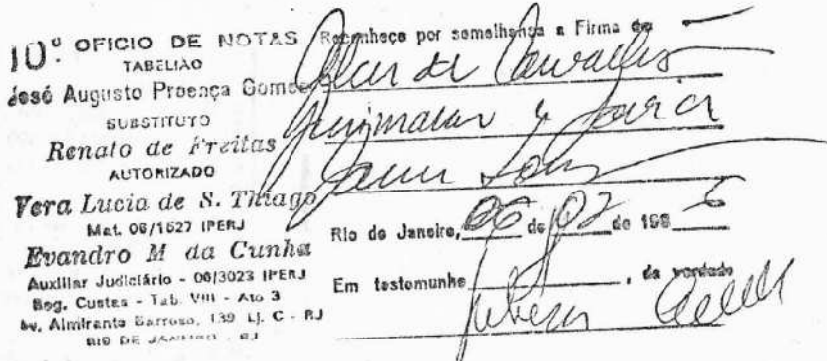 10º OFICIO DE NOTAS
TABELIÃO
José Augusto Proença Gomes
SUBSTITUTO
Renato de Freitas
AUTORIZADO
Vera Lucia de S. Thiago
Mat. 06/1527 IPERJ
Evandro M da Cunha
Auxiliar Judiciário - 06/3023 IPERJ
Reg. Custas - Tab. VIII - Ato 3
Av. Almirante Barroso, 139 Lj. C - RJ
RIO DE JANEIRO - RJ
Reconheço por semelhança a Firma de
de Carvalho
Guimarães e
Rio de Janeiro, 06 de 02 de 198 6
Em testemunho , da verdade